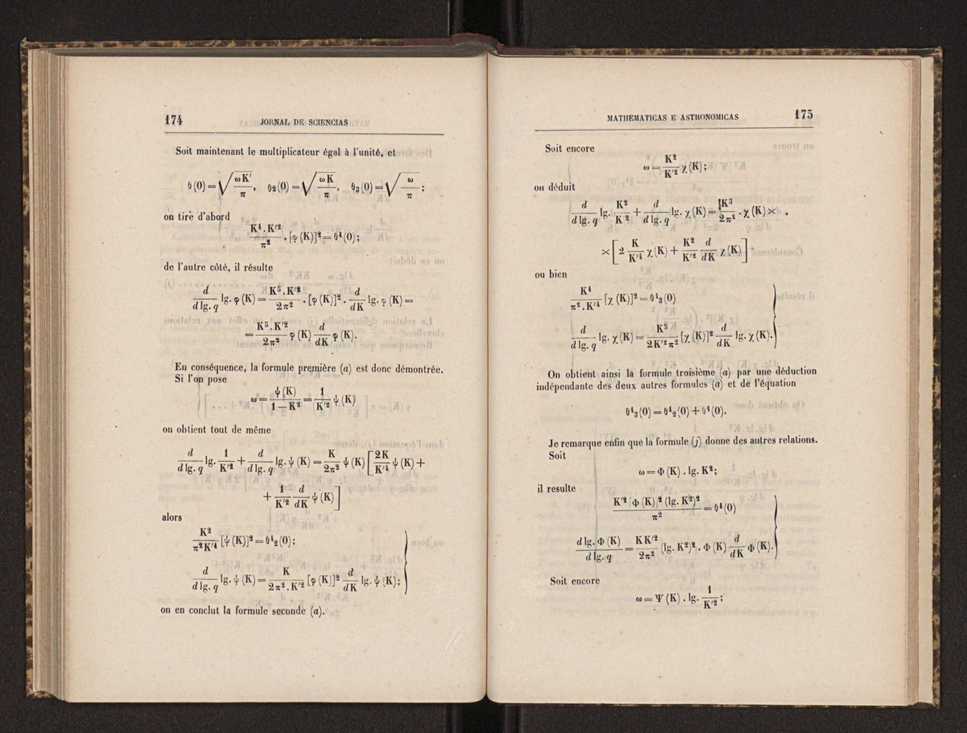 174 JORNAL DE SCIENCIAS
Soit maintenant le multiplicateur égal à l'unité, et
ϑ(0) = √(ωK′/π), ϑ₂(0) = √(ωK/π), ϑ₃(0) = √(ω/π);
on tire d'abord
K⁴.K′²/π² . [φ(K)]² = ϑ⁴(0);
de l'autre côté, il résulte
d/(d lg. q) lg. φ(K) = K⁵.K′²/2π² . [φ(K)]² . d/dK lg. φ(K) =
= K⁵.K′²/2π² φ(K) d/dK φ(K).
En conséquence, la formule première (a) est donc démontrée.
Si l'on pose
ω = ψ(K)/(1 — K²) = 1/K′² ψ(K)
on obtient tout de même
d/(d lg. q) lg. 1/K′² + d/(d lg. q) lg. ψ(K) = K/2π² ψ(K) [2K/K′⁴ ψ(K) +
+ 1/K′² d/dK ψ(K)]
alors
K²/π²K′⁴ [ψ(K)]² = ϑ⁴₂(0);
d/(d lg. q) lg. ψ(K) = K/2π².K′² [φ(K)]² d/dK lg. ψ(K);
on en conclut la formule seconde (a).
MATHEMATICAS E ASTRONOMICAS 175
Soit encore
ω = K²/K′² χ(K);
on déduit
d/(d lg. q) lg. K²/K′² + d/(d lg. q) lg. χ(K) = K³/2π⁴ . χ(K) ×
× [2 K/K′⁴ χ(K) + K²/K′² d/dK χ(K)]
ou bien
K⁴/π².K′⁴ [χ(K)]² = ϑ⁴₃(0)
d/(d lg. q) lg. χ(K) = K⁵/2K′²π² [χ(K)]² d/dK lg. χ(K).
On obtient ainsi la formule troisième (a) par une déduction
indépendante des deux autres formules (a) et de l'équation
ϑ⁴₃(0) = ϑ⁴₂(0) + ϑ⁴(0).
Je remarque enfin que la formule (j) donne des autres relations.
Soit
ω = Φ(K) . lg. K²;
il resulte
K′²[Φ(K)]²(lg. K²)²/π² = ϑ⁴(0)
d lg. Φ(K)/(d lg. q) = KK′²/2π² (lg. K²)² . Φ(K) d/dK Φ(K).
Soit encore
ω = Ψ(K) . lg. 1/K′²;